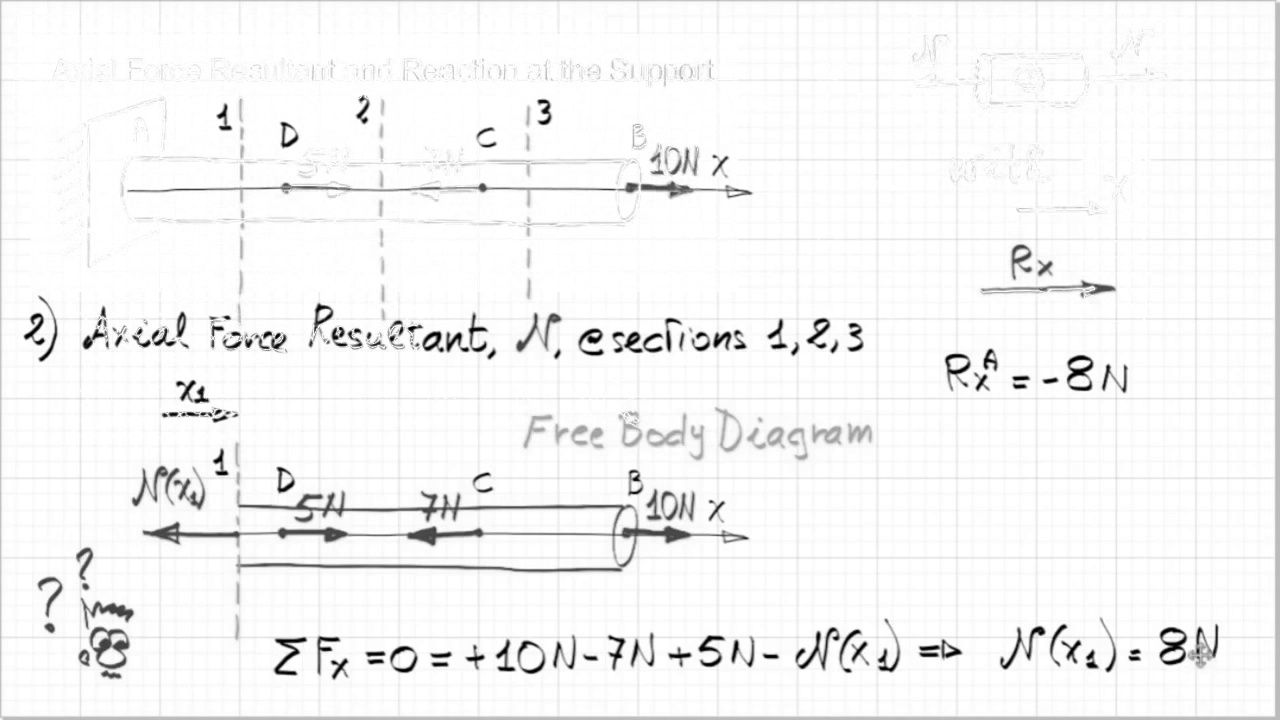 Axial Force Resultant and Reaction at the Support
1 2 3
A D 5N 7N C B 10N x
N N
with x
Rx
2) Axial Force Resultant, N, @sections 1,2,3
RxA = -8N
x1
Free Body Diagram
1
N(x1) D 5N 7N C B 10N x
? ?
ΣFx =0= +10N-7N+5N- N(x1) => N(x1) = 8N